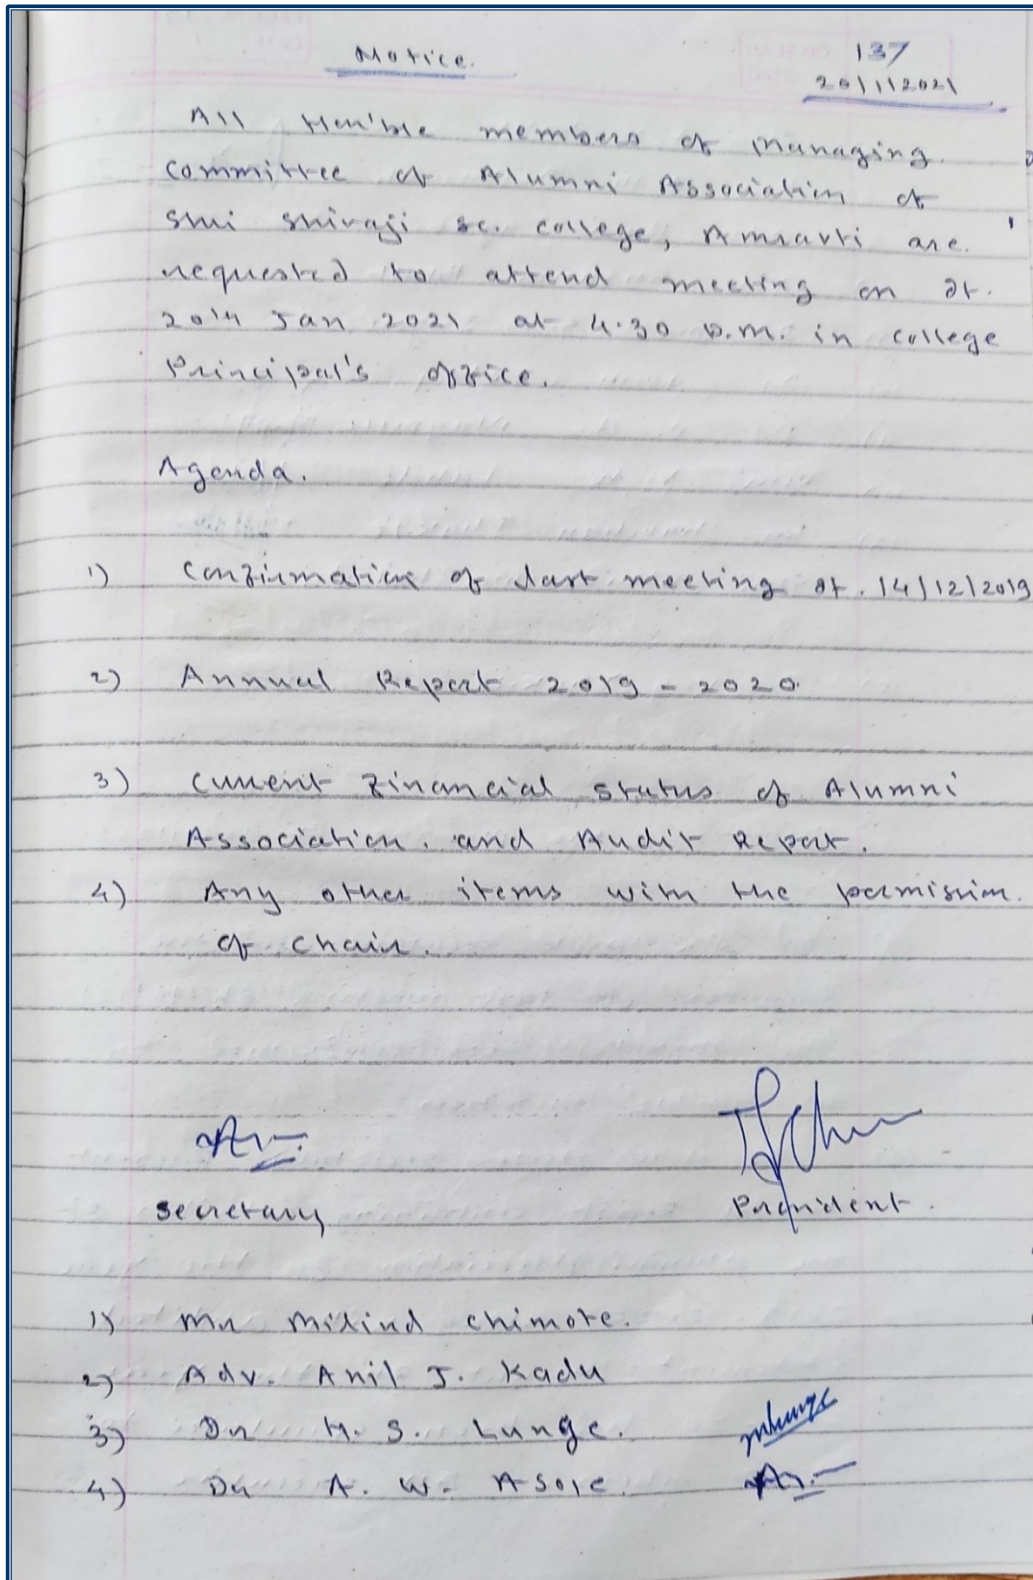 Notice.
137
20/1/2021
All Hon'ble members of Managing
committee of Alumni Association of
Shri Shivaji Sc. college, Amravti are
requested to attend meeting on dt.
20th Jan 2021 at 4.30 p.m. in college
Principal's office.
Agenda.
1) Confirmation of last meeting dt. 14/12/2019
2) Annual Report 2019-2020.
3) Current financial status of Alumni
Association. and Audit Report.
4) Any other items with the permission
of chair.
Secretary
President.
1) Mr Milind Chimote.
2) Adv. Anil J. Kadu
3) Dr H. S. Lunge. mlunge
4) Dr A. W. Asole.